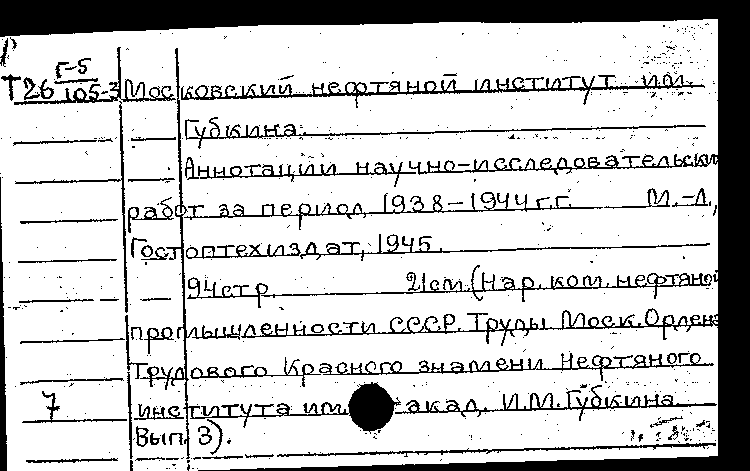 Г-5
Т26 105-3 Московский нефтяной институт им.
Губкина.
Аннотации научно-исследовательски
работ за период 1938-1944 г.г. М.-Л.,
Гостоптехиздат, 1945.
94стр. 21см.(Нар.ком.нефтяной
промышленности СССР. Труды Моск.Ордена
Трудового Красного знамени Нефтяного
7 института им. акад. И.М.Губкина
Вып. 3).